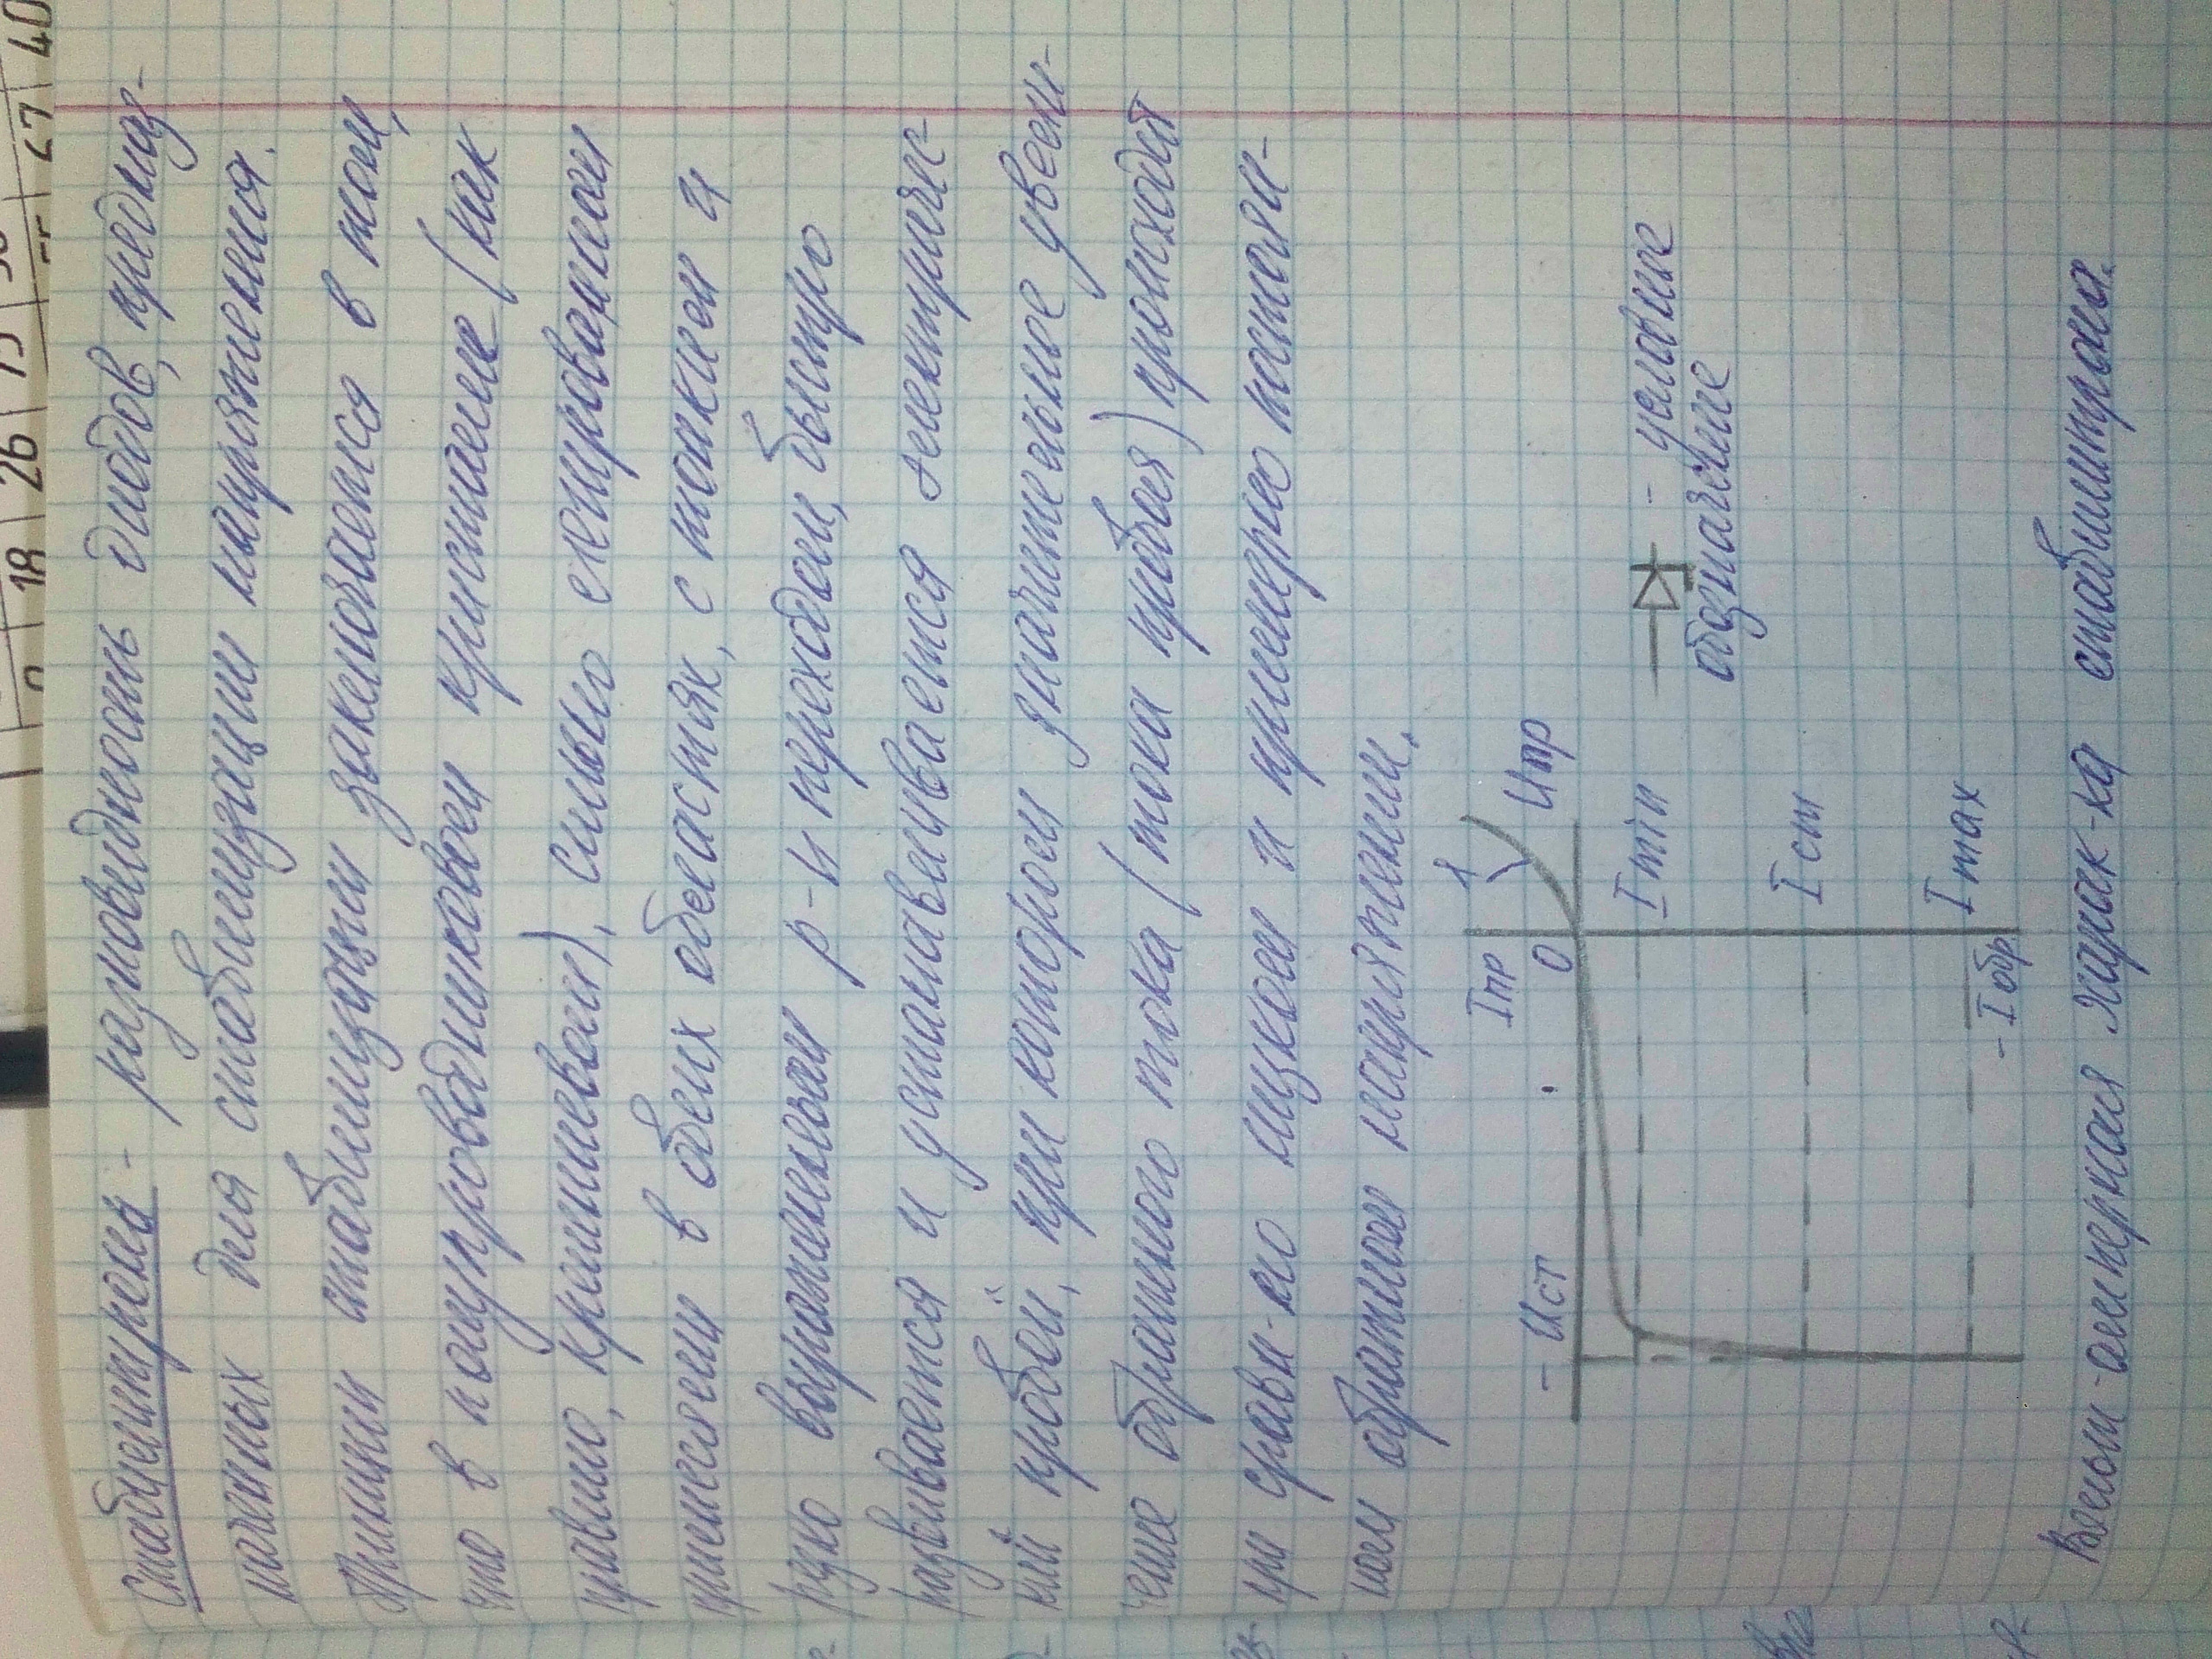 Стабилитроны - разновидность диодов, предназ-
наченных для стабилизации напряжения.
Принцип стабилизации заключается в том,
что в полупроводниковом кристалле (как
правило, кремниевом), сильно легированном
примесями в обеих областях, с тонкем и
резко выраженным p-n переходом, быстро
развивается и устанавливается электричес-
кий пробой, при котором значительное увели-
чение обратного тока (тока пробоя) происходит
при сравн-но низком и примерно постоян-
ном обратном напряжении.
Iпр
1
- Uст
0
Uпр
Imin
- условние
обозначение
Iст
Imax
- Iобр
Вольт-амперная харак-ка стабилитрона.
18 26